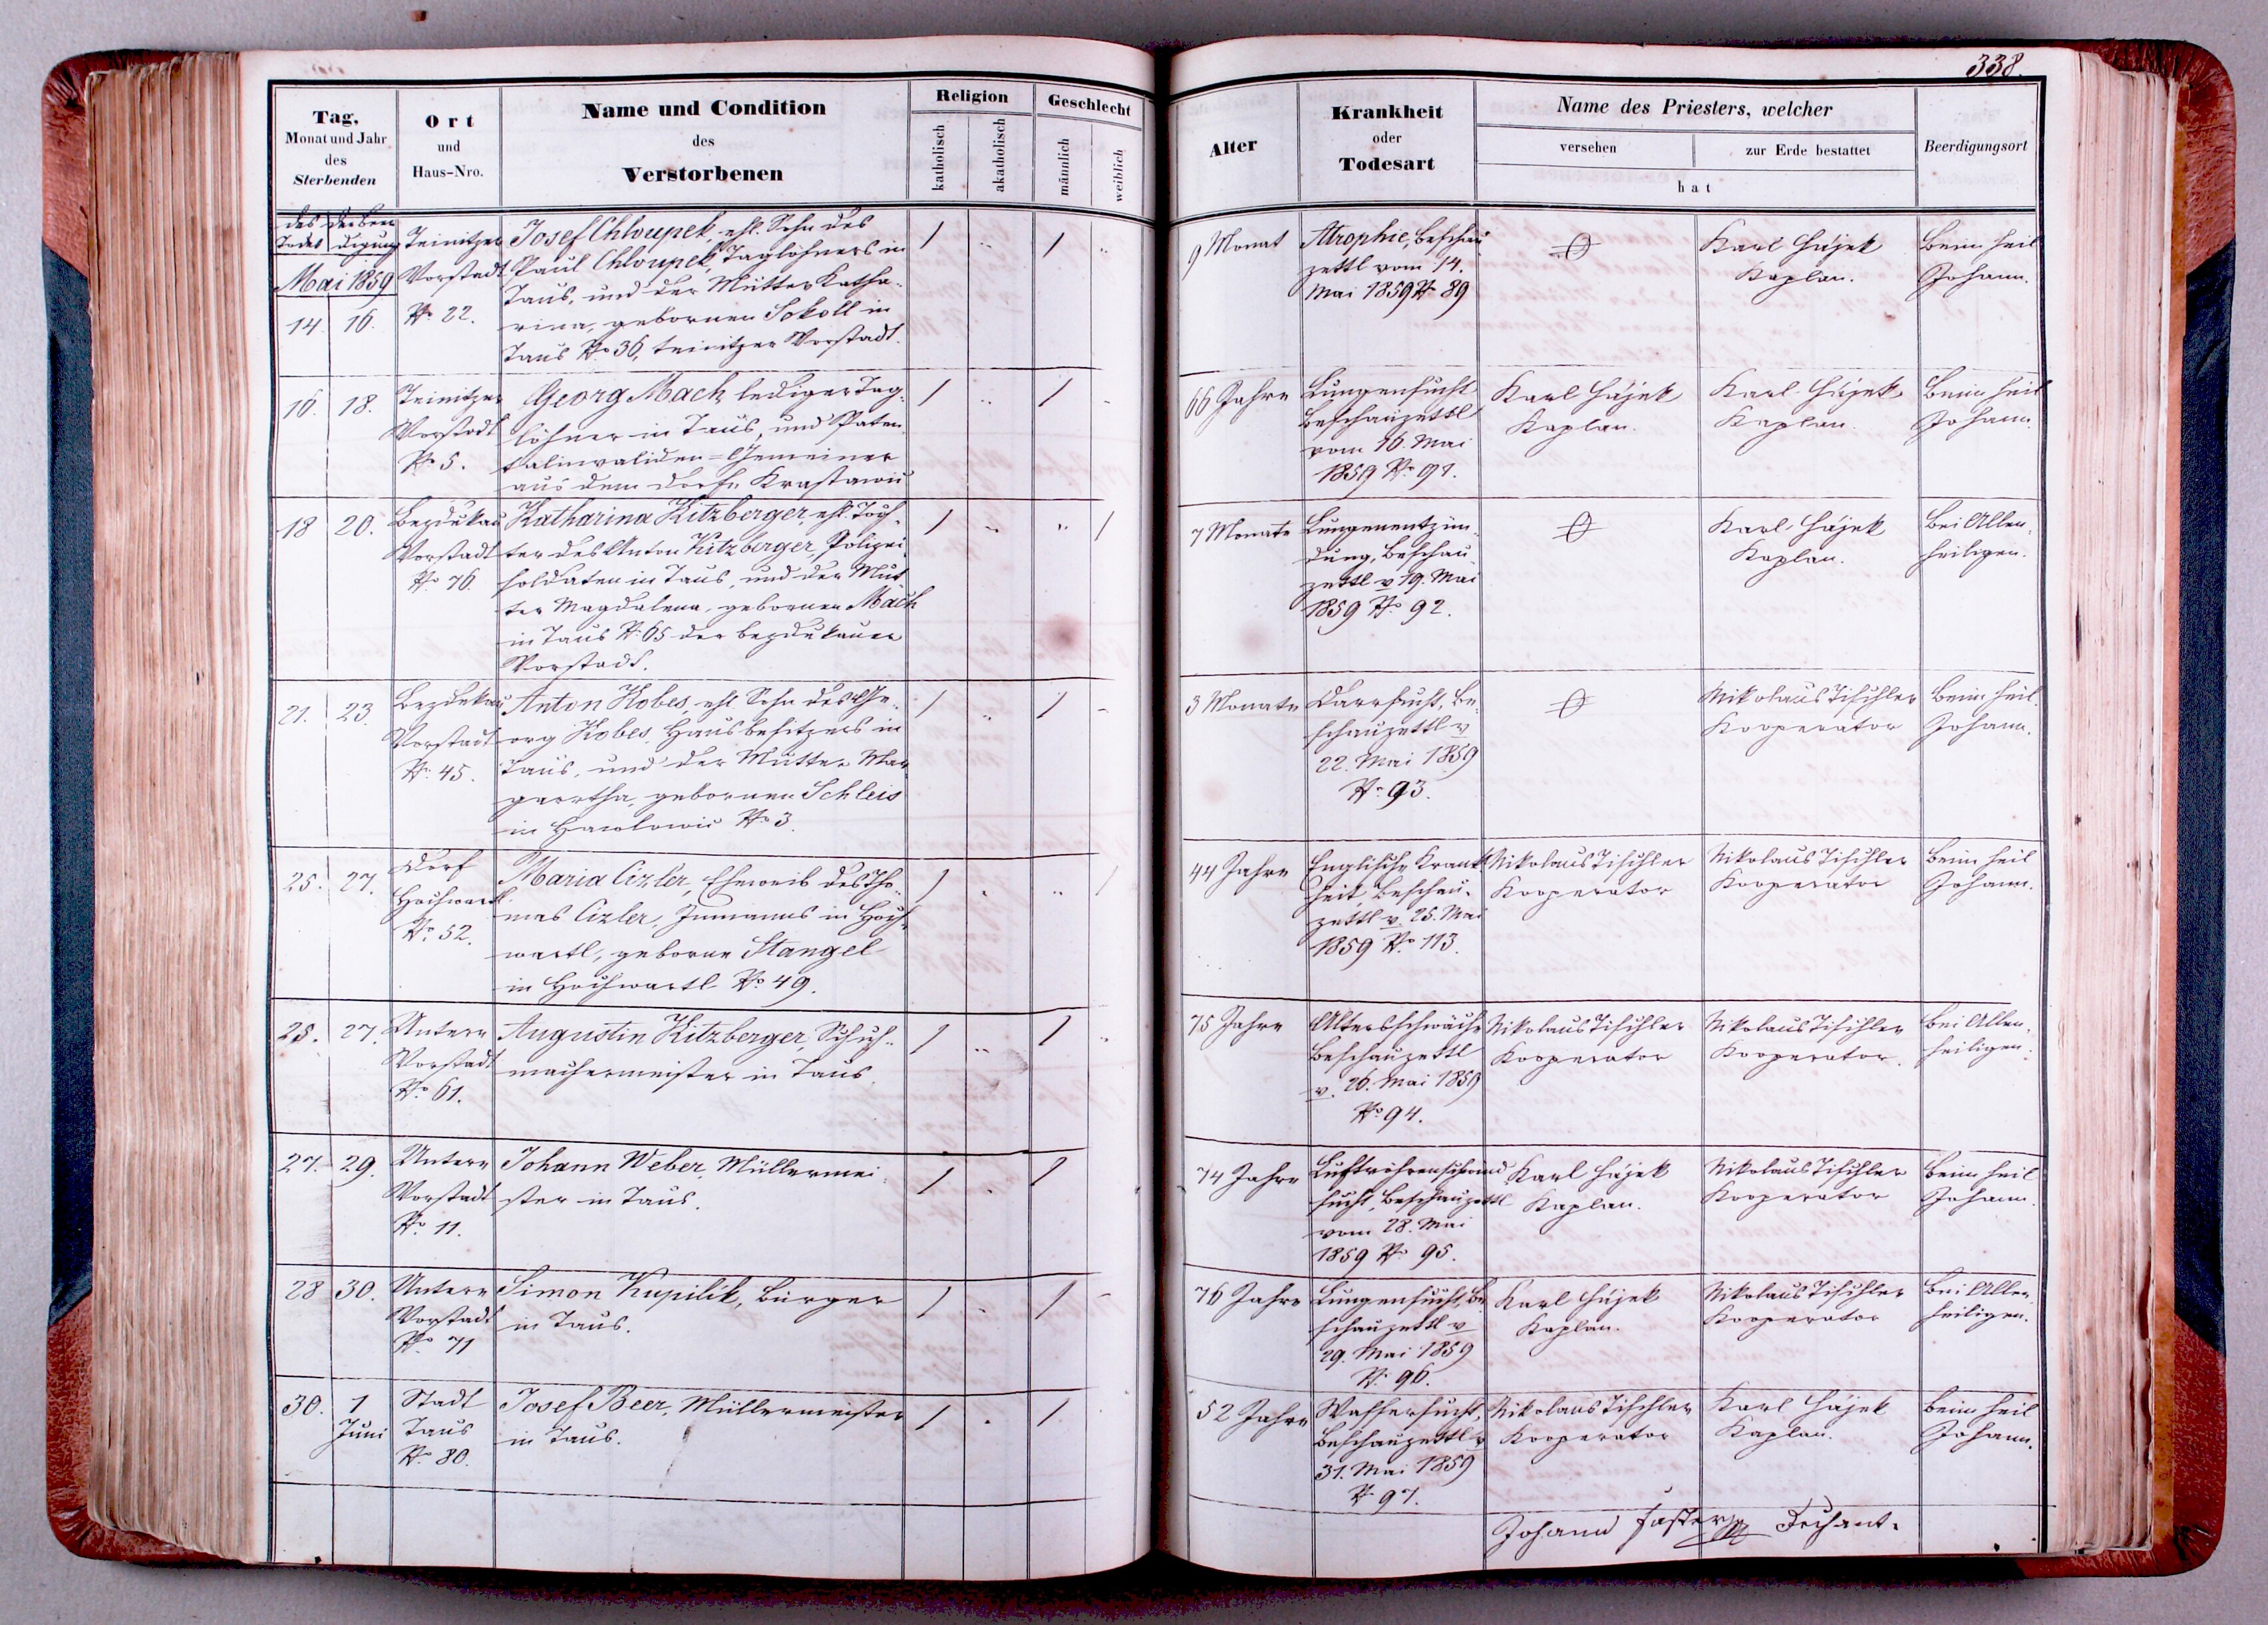 338.
Tag,
Monat und Jahr
des
Sterbenden
Ort
und
Haus-Nro.
Name und Condition
des
Verstorbenen
Religion
katholisch
akatholisch
Geschlecht
männlich
weiblich
Alter
Krankheit
oder
Todesart
Name des Priesters, welcher
versehen
zur Erde bestattet
hat
Beerdigungsort
des Todes
der Beerdigung
Mai 1859
14. 16.
Teinitzer
Vorstadt
No 22.
Josef Chloupek, ehl. Sohn des
Paul Chloupek, Taglöhners in
Taus, und der Mutter Katha-
rina, gebornen Sokoll in
Taus No 36, teinitzer Vorstadt.
9 Monat
Atrophie, Beschau
zettl vom 14.
Mai 1859 No 89
Karl Hájek
Kaplan.
Beim heil
Johann.
16. 18.
Teinitzer
Vorstadt
No 5.
Georg Mach, lediger Tag-
löhner in Taus, und Paten-
talinvaliden=Gemeiner
aus dem Dorfe Krastawic
66 Jahre
Lungensucht
Beschauzettl
vom 16 Mai
1859 No 91.
Karl Hájek
Kaplan.
Karl Hájek
Kaplan.
Beim heil
Johann.
18 20.
Bezdukau
Vorstadt
No 76.
Katharina Kitzberger, ehl. Toch-
ter des Anton Kitzberger, Polizei
soldaten in Taus, und der Mut
ter Magdalena, gebornen Mach
in Taus No 65 der bezdukauer
Vorstadt.
7 Monate
Lungenentzün-
dung, Beschau
zettl v 19. Mai
1859 No 92.
Karl Hájek
Kaplan.
Bei Allen
heiligen.
21. 23.
Bezdukau
Vorstadt
No 45.
Anton Kobes, ehl. Sohn des Ge-
org Kobes, Hausbesitzers in
Taus, und der Mutter Mar
garetha, gebornen Schleis
in Hawlowic No 3.
3 Monate
Darrsucht, Be-
schauzettl v
22. Mai 1859
No 93.
Nikolaus Tischler
Kooperator
Beim heil.
Johann.
25. 27.
Dorf
Hochwartl
No 52.
Maria Cizler, Eheweib des Tho-
mas Cizler, Inmanns in Hoch-
wartl, geborne Stangel
in Hochwartl No 49.
44 Jahre
Englische Krank
heit, Beschau-
zettl v. 25. Mai
1859 No 113.
Nikolaus Tischler
Kooperator
Nikolaus Tischler
Kooperator
Beim heil
Johann.
25. 27.
Untere
Vorstadt
No 61.
Augustin Kitzberger, Schuh-
machermeister in Taus.
75 Jahre
Altersschwäche
Beschauzettl
v. 26. Mai 1859
No 94.
Nikolaus Tischler
Kooperator
Nikolaus Tischler
Kooperator.
Bei Allen-
heiligen.
27. 29.
Untere
Vorstadt
No 11.
Johann Weber, Müllermei-
ster in Taus.
74 Jahre
Luftröhrenschwind
sucht, Beschauzettl
vom 28. Mai
1859 No 95.
Karl Hájek
Kaplan.
Nikolaus Tischler
Kooperator
Beim heil
Johann.
28 30.
Untere
Vorstadt
No 71
Simon Kupilík, Bürger
in Taus.
76 Jahre
Lungensucht, Be
schauzettl v
29. Mai 1859
No 96.
Karl Hájek
Kaplan.
Nikolaus Tischler
Kooperator
Bei Allen
heiligen.
30. 1
Juni
Stadt
Taus
No 80.
Josef Beer, Müllermeister
in Taus.
52 Jahre
Wassersucht,
Beschauzettl v
31. Mai 1859
No 97.
Nikolaus Tischler
Kooperator
Karl Hájek
Kaplan.
Beim heil
Johann.
Johann Faster Dechant.